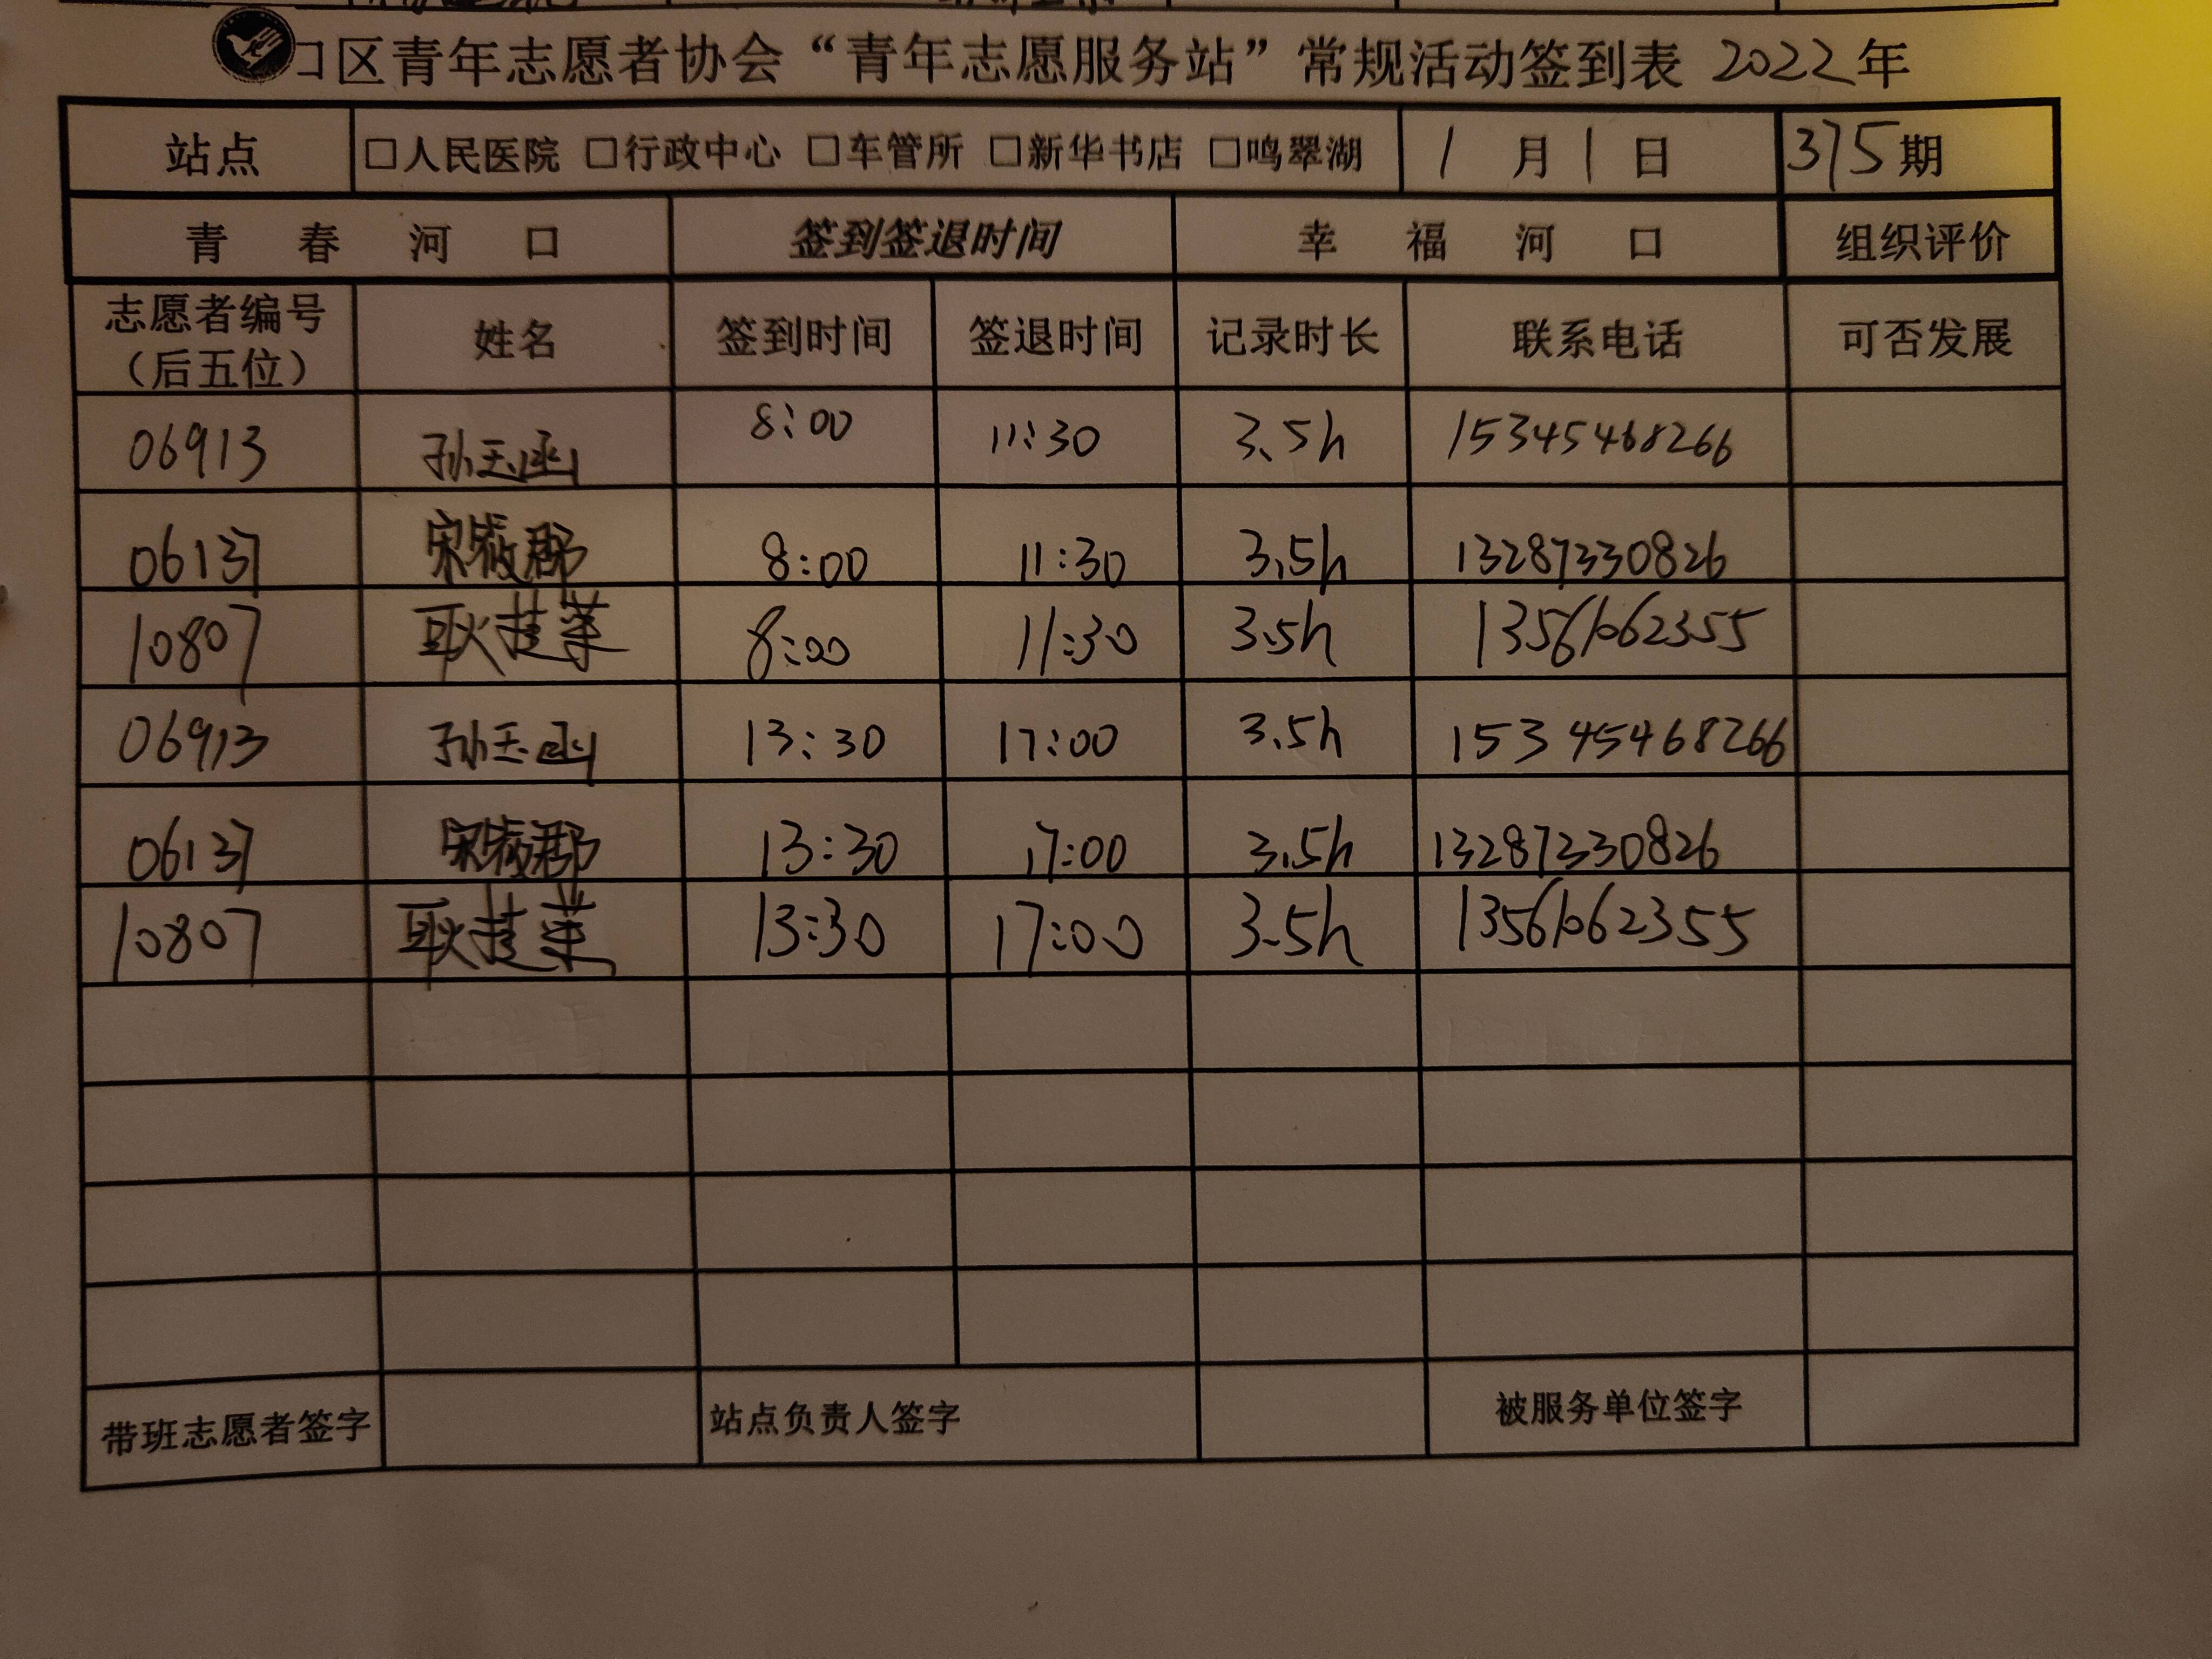 口区青年志愿者协会“青年志愿服务站”常规活动签到表 2022年
站点 □人民医院 □行政中心 □车管所 □新华书店 □鸣翠湖 1 月 1 日 375期
青 春 河 口 签到签退时间 幸 福 河 口 组织评价
志愿者编号（后五位） 姓名 签到时间 签退时间 记录时长 联系电话 可否发展
06913 孙玉函 8:00 11:30 3.5h 15345468266
06137 宋筱郡 8:00 11:30 3.5h 13287330826
10807 耿 8:00 11:30 3.5h 13561062355
06913 孙玉函 13:30 17:00 3.5h 15345468266
06137 宋筱郡 13:30 17:00 3.5h 13287330826
10807 耿 13:30 17:00 3.5h 13561062355
带班志愿者签字 站点负责人签字 被服务单位签字